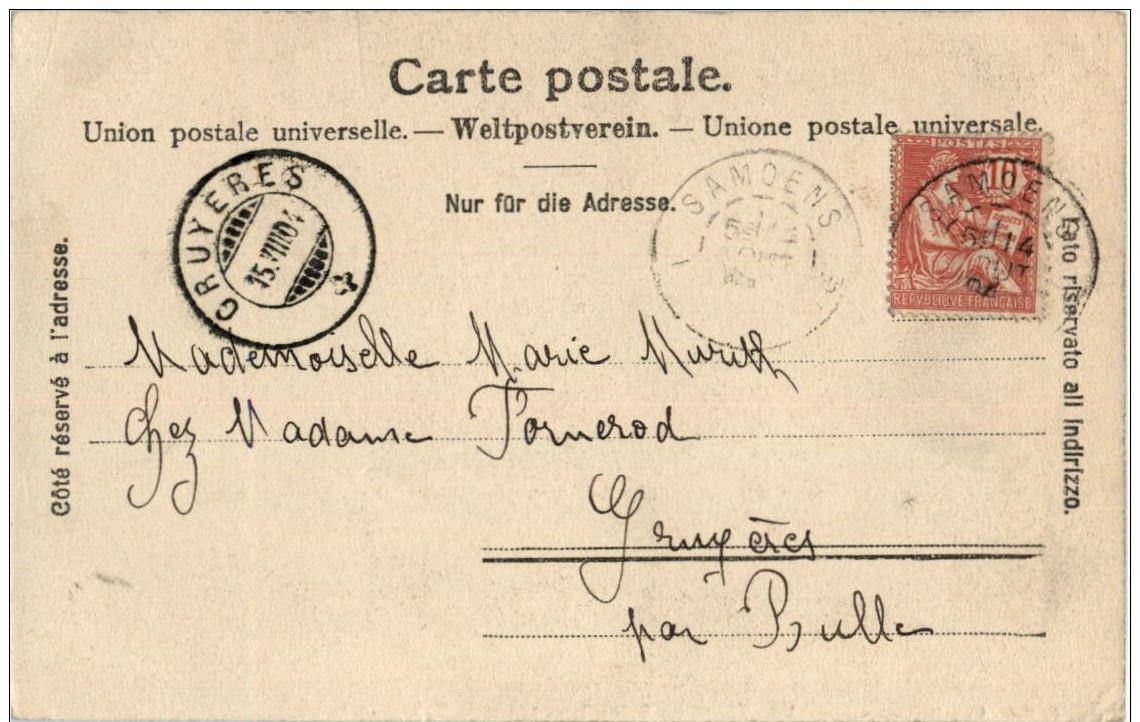 Carte postale.
Union postale universelle. — Weltpostverein. — Unione postale universale.
Nur für die Adresse.
GRUYERES
15.VIII.04
SAMOENS
POSTES
10
REPVBLIQVE FRANÇAISE
SAMOENS
14
Côté réservé à l'adresse.
Lato riservato all Indirizzo.
Mademoiselle Marie Murith
Chez Madame Fornerod
Gruyères
par Bulle